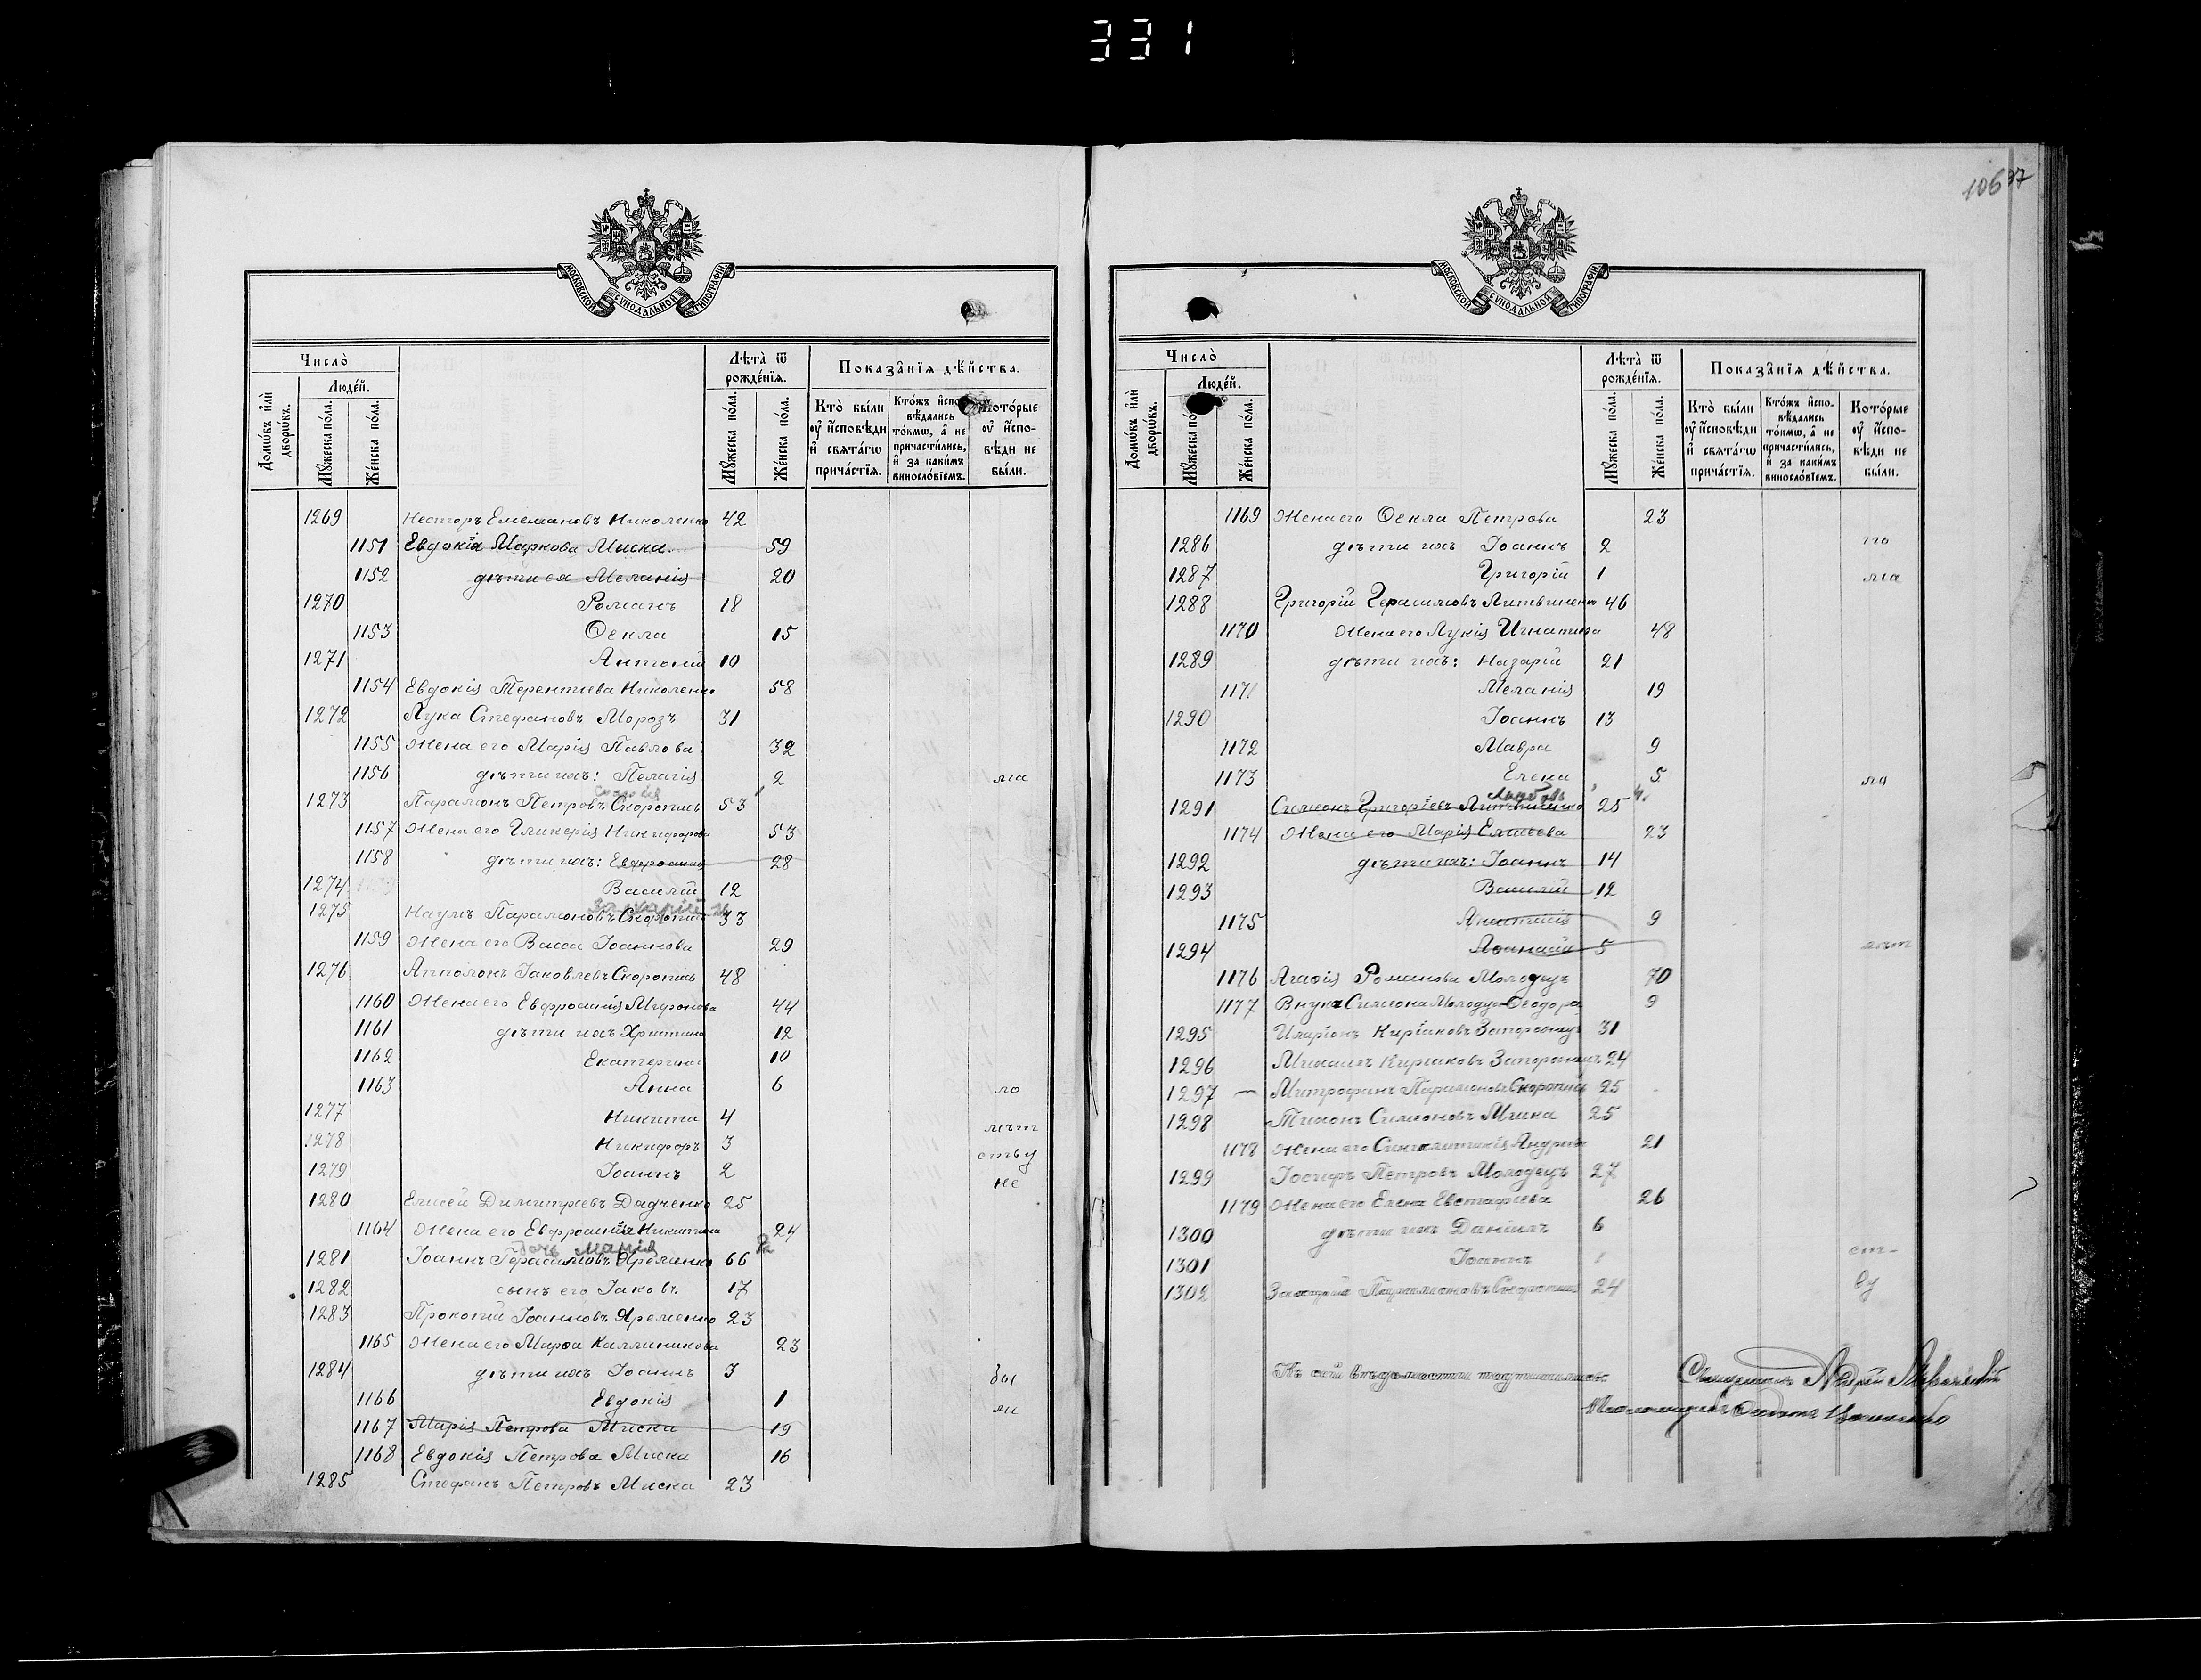 331
МОСКОВСКОЙ СѴНОДАЛЬНОЙ ТИПОГРАФІИ
Число̀
Людéй.
Домѡ́въ и҆лѝ дворѡ́въ.
Мꙋ́жеска по́ла.
Же́нска по́ла.
Лѣта̀ ѿ рожде́нїѧ.
Мꙋ́жеска по́ла.
Же́нска по́ла.
Показа̑нїѧ дѣ́йства.
Кто̀ бы́ли оу҆ и҆́сповѣди и҆ свѧта́гѡ прича́стїѧ.
Кто́жъ и҆спо-вѣ́дались то́кмѡ, а҆ не причасти́лись, и҆ за каки́мъ винослѡ́вїемъ.
Кото́рые оу҆ и҆́спо-вѣди не бы́ли.
1269 Несторъ Емельановъ Николенко 42
1151 Евдокія Маркова Миска 59
1152 дѣти ея Меланія 20
1270 Романъ 18
1153 Ѳекла 15
1271 Антоній 10
1154 Евдокія Терентіева Николенко 58
1272 Лука Стефановъ Морозъ 31
1155 Жена его Марія Павлова 32
1156 дѣти ихъ: Пелагія 2 ма
1273 Парамонъ Петровъ Скоропись 53
1157 Жена его Гликерія Никифорова 53
1158 дѣти ихъ: Евфросинія 28
1274 Василій 12
Захарій
1275 Наумъ Парамоновъ Скоропись 33
1159 Жена его Васса Іоаннова 29
1276 Апполонъ Іаковлевъ Скоропись 48
1160 Жена его Евфросинія Миронова 44
1161 дѣти ихъ Христина 12
1162 Екатерина 10
1163 Анна 6 ло
1277 Никита 4 лѣт
1278 Никифоръ 3 ству
1279 Іоаннъ 2 не
1280 Елисей Димитріевъ Дадченко 25
1164 Жена его Евфросинія Никитина 24
дочь Марія
1281 Іоаннъ Герасимовъ Яременко 66
1282 сынъ его Іаковъ 17
1283 Прокопій Іоанновъ Яременко 23
1165 Жена его Марѳа Каллиникова 23
1284 дѣти ихъ Іоаннъ 3 бы
1166 Евдокія 1 ли
1167 Марія Петрова Миска 19
1168 Евдокія Петрова Миска 16
1285 Стефанъ Петровъ Миска 23
106
97
МОСКОВСКОЙ СѴНОДАЛЬНОЙ ТИПОГРАФІИ
Число̀
Людéй.
Домѡ́въ и҆лѝ дворѡ́въ.
Мꙋ́жеска по́ла.
Же́нска по́ла.
Лѣта̀ ѿ рожде́нїѧ.
Мꙋ́жеска по́ла.
Же́нска по́ла.
Показа̑нїѧ дѣ́йства.
Кто̀ бы́ли оу҆ и҆́сповѣди и҆ свѧта́гѡ прича́стїѧ.
Кто́жъ и҆спо-вѣ́дались то́кмѡ, а҆ не причасти́лись, и҆ за каки́мъ винослѡ́вїемъ.
Кото́рые оу҆ и҆́спо-вѣди не бы́ли.
1169 Жена его Ѳекла Петрова 23
1286 дѣти ихъ Іоаннъ 2 по
1287 Григорій 1 ма
1288 Григорій Герасимовъ Литвиненко 46
1170 Жена его Лукія Игнатіева 48
1289 дѣти ихъ: Назарій 21
1171 Меланія 19
1290 Іоаннъ 13
1172 Мавра 9
1173 Елена 5 ма
Любовь 4
1291 Симеонъ Григоріевъ Литвиненко 25
1174 Жена его Марія Елисеева 23
1292 дѣти ихъ: Іоаннъ 14
1293 Василій 12
1175 Анастасія 9
1294 Аѳанасій 5 лѣт
1176 Агаѳія Романова Молодецъ 70
1177 Внука Симеона Молодца Ѳеодора 9
1295 Иларіонъ Киріаковъ Запорожецъ 31
1296 Михаилъ Киріаковъ Запорожецъ 24
1297 Митрофанъ Парамоновъ Скоропись 25
1298 Тихонъ Симеоновъ Миска 25
1178 Жена его Синклитикія Андреева 21
1299 Іосифъ Петровъ Молодецъ 27
1179 Жена его Елена Евстафіева 26
1300 дѣти ихъ Даніилъ 6
1301 Іоаннъ 1 ст-
1302 Захарій Парамоновъ Скоропись 24 ву
Къ сей вѣдомости подписались:
Священникъ Андрей
Псаломщикъ